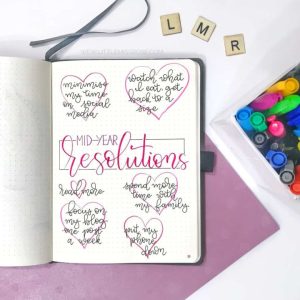 L M R
minimise
my time
on social
media
watch what
I eat, get
back to a
size
MID-YEAR
resolutions
read more
spend more
time with
my family
focus on
my blog
one post
a week
put my
phone
down